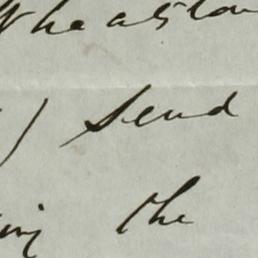 Wheatston
) send
ing the